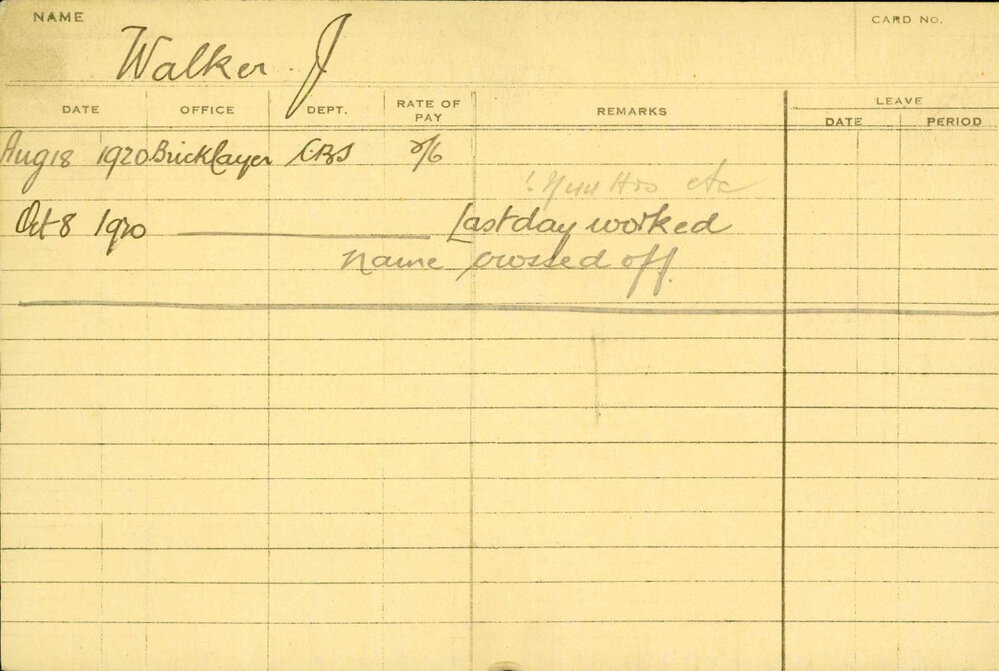 NAME
CARD No.
Walker J
DATE OFFICE DEPT. RATE OF PAY REMARKS LEAVE
DATE PERIOD
Aug 18 1920 Bricklayer CBS 2/6
Hrs etc
Oct 8 1920 Last day worked
name crossed off